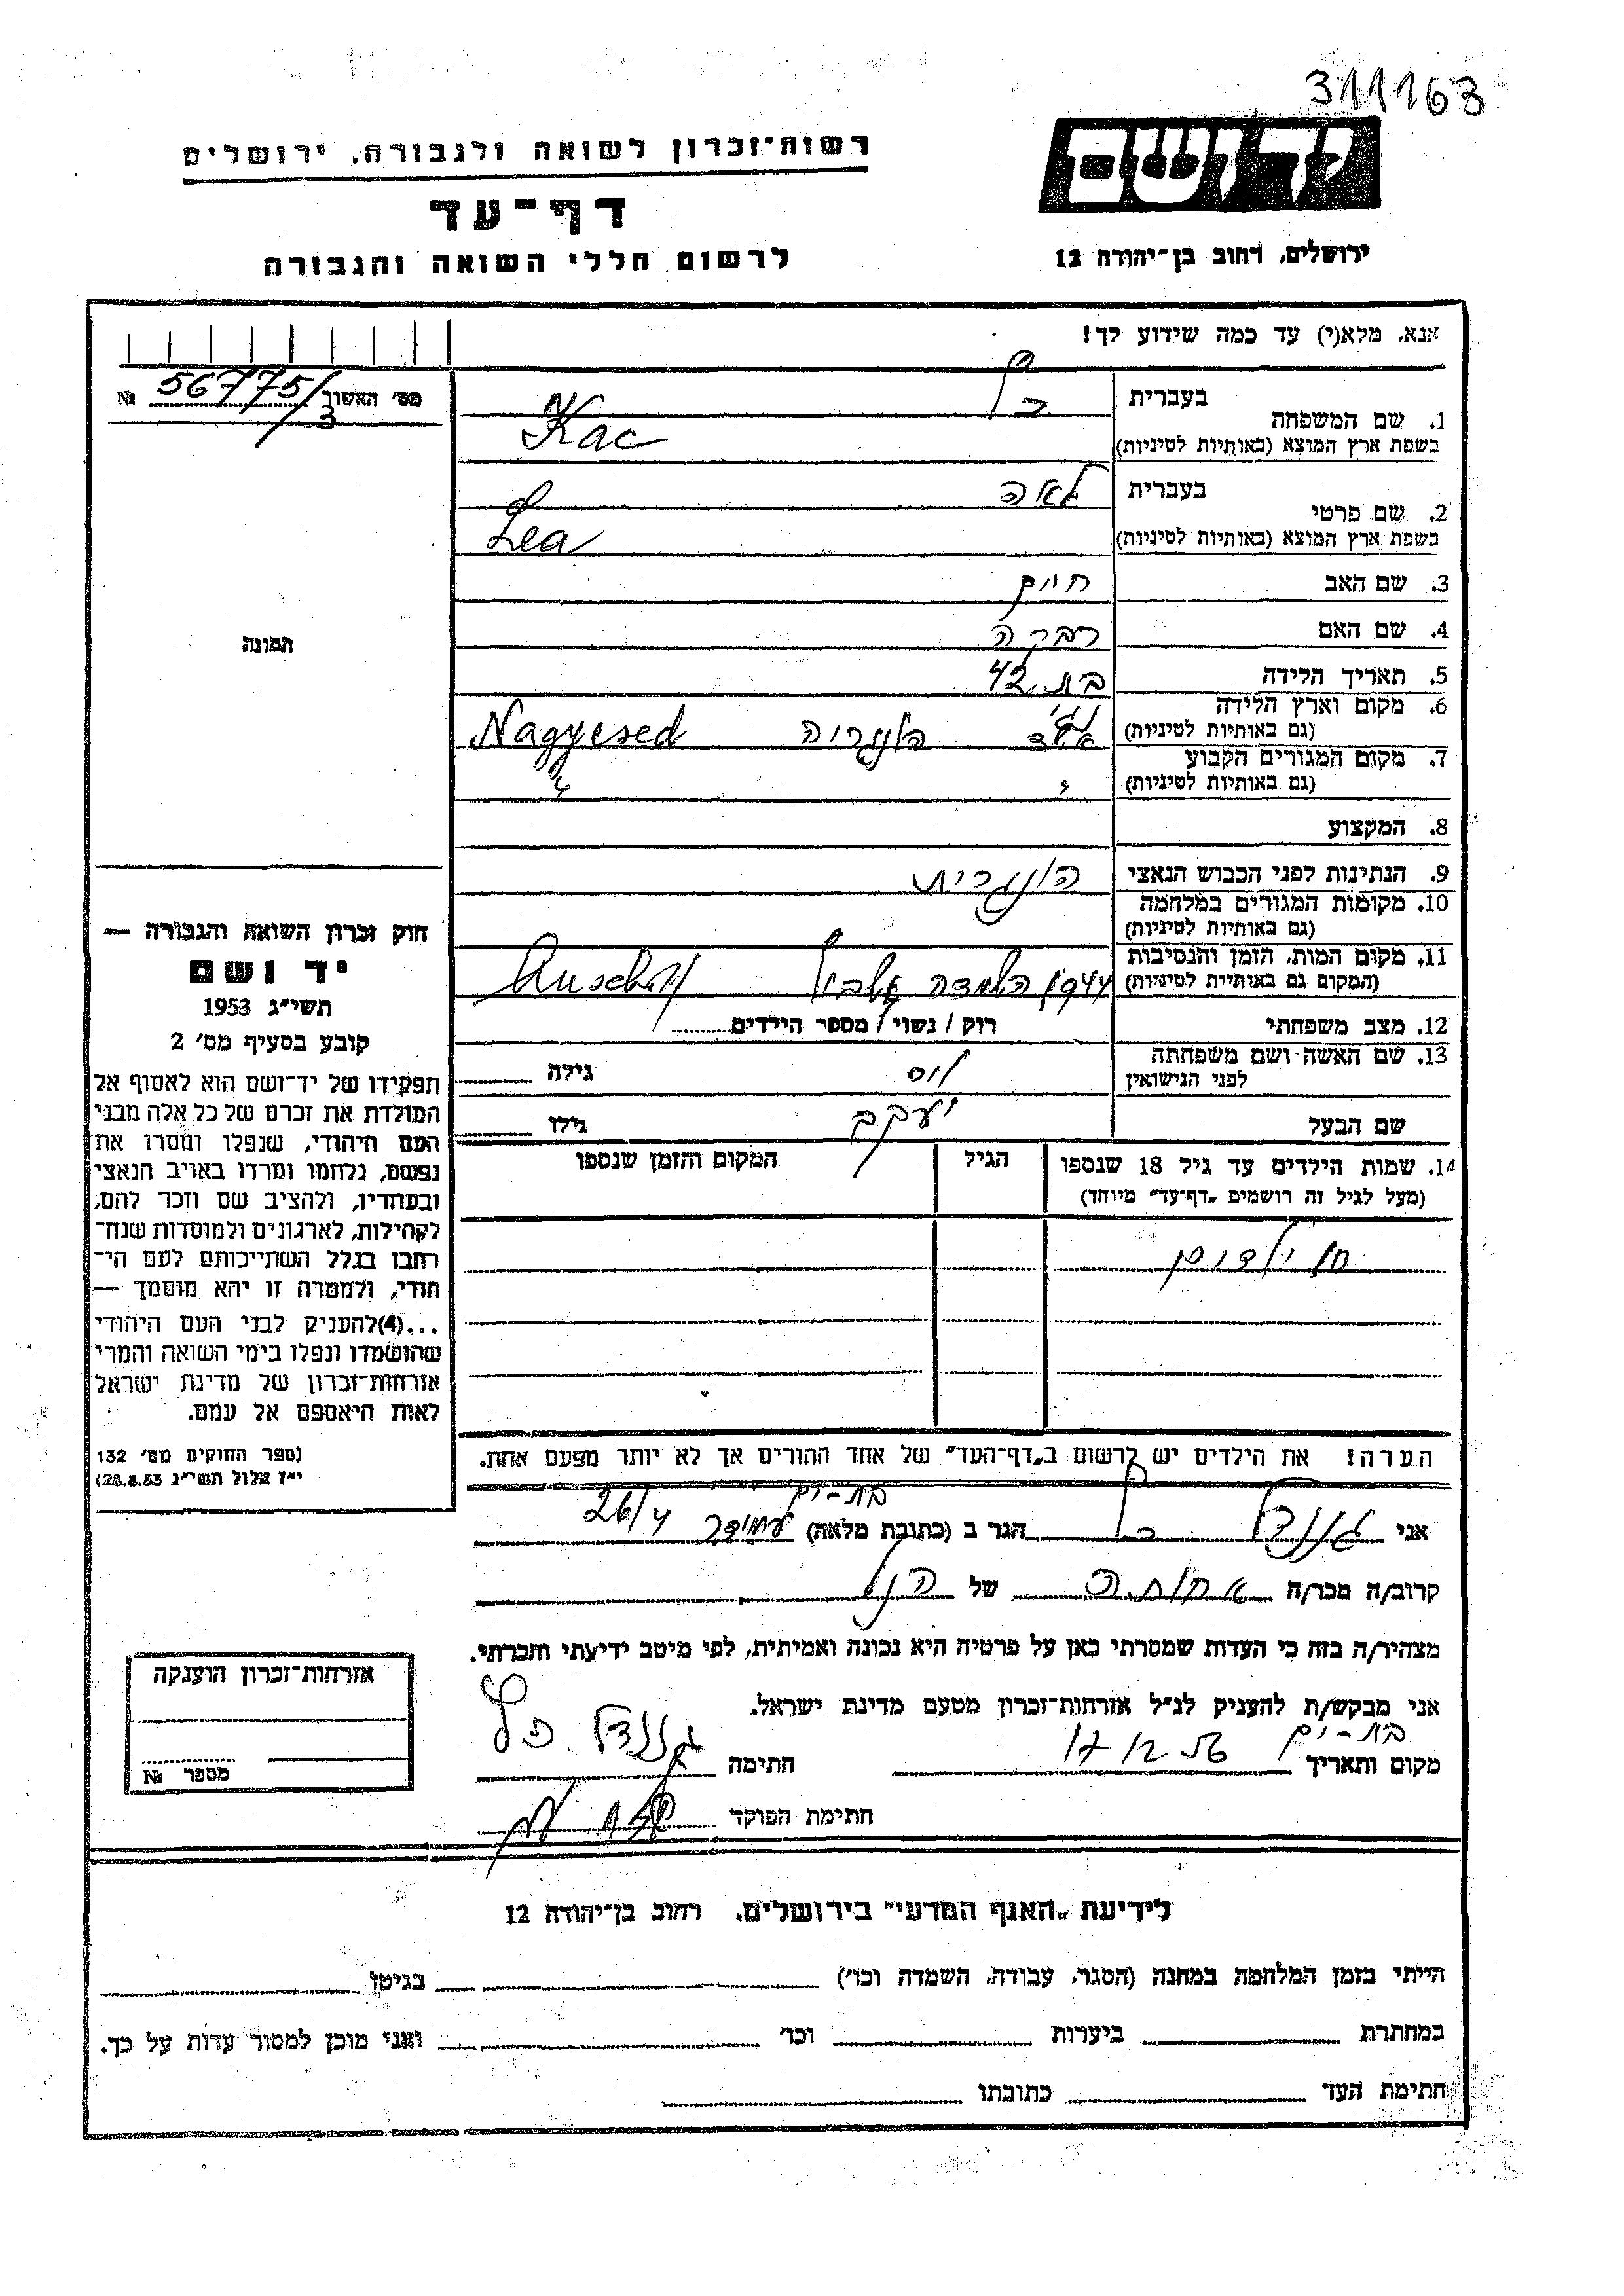 311163
יד ושם
רשות־זכרון לשואה ולגבורה, ירושלים
דף־עד
לרשום חללי השואה והגבורה
ירושלים, רחוב בן־יהודה 12
אנא, מלא(י) עד כמה שידוע לך!
מס׳ האשור № 56775/3
1. שם המשפחה
בעברית כץ
בשפת ארץ המוצא (באותיות לטיניות) Kac
2. שם פרטי
בעברית לאה
בשפת ארץ המוצא (באותיות לטיניות) Lea
3. שם האב חיים
4. שם האם רבקה
5. תאריך הלידה בת 42
6. מקום וארץ הלידה
(גם באותיות לטיניות) הונגריה Nagyesed
7. מקום המגורים הקבוע
(גם באותיות לטיניות) " "
8. המקצוע
9. הנתינות לפני הכבוש הנאצי הונגרית
10. מקומות המגורים במלחמה
(גם באותיות לטיניות)
11. מקום המות, הזמן והנסיבות
(המקום גם באותיות לטיניות) 1944 הושמדה
12. מצב משפחתי רוק / נשוי / מספר הילדים
13. שם האשה ושם משפחתה
לפני הנישואין גילה
שם הבעל יעקב גילו
14. שמות הילדים עד גיל 18 שנספו
(מעל לגיל זה רושמים „דף־עד״ מיוחד)
הגיל
המקום והזמן שנספו
ילדים
הערה! את הילדים יש לרשום ב„דף־העד״ של אחד ההורים אך לא יותר מפעם אחת.
תמונה
חוק זכרון השואה והגבורה —
יד ושם
תשי״ג 1953
קובע בסעיף מס׳ 2
תפקידו של יד־ושם הוא לאסוף אל
המולדת את זכרם של כל אלה מבני
העם היהודי, שנפלו ומסרו את
נפשם, נלחמו ומרדו באויב הנאצי
ובעוזריו, ולהציב שם וזכר להם,
לקהילות, לארגונים ולמוסדות שנח־
רבו בגלל השתייכותם לעם הי־
הודי, ולמטרה זו יהא מוסמך —
...(4)להעניק לבני העם היהודי
שהושמדו ונפלו בימי השואה והמרי
אזרחות־זכרון של מדינת ישראל
לאות היאספם אל עמם.
(ספר החוקים מס׳ 132
י״ז אלול תשי״ג 28.8.53)
אני כץ הגר ב (כתובת מלאה) בת-ים עמידר 26/4
קרוב/ה מכר/ה אחותה של הנ״ל
מצהיר/ה בזה כי העדות שמסרתי כאן על פרטיה היא נכונה ואמיתית, לפי מיטב ידיעתי והכרתי.
אני מבקש/ת להעניק לנ״ל אזרחות־זכרון מטעם מדינת ישראל.
מקום ותאריך בת-ים 17 12 56 חתימה כץ
חתימת הפוקד
אזרחות־זכרון הוענקה
מספר №
לידיעת „האגף המדעי״ בירושלים, רחוב בן־יהודה 12
הייתי בזמן המלחמה במחנה (הסגר, עבודה, השמדה וכו׳) בגיטו
במחתרת ביערות וכו׳ ואני מוכן למסור עדות על כך.
חתימת העד כתובתו